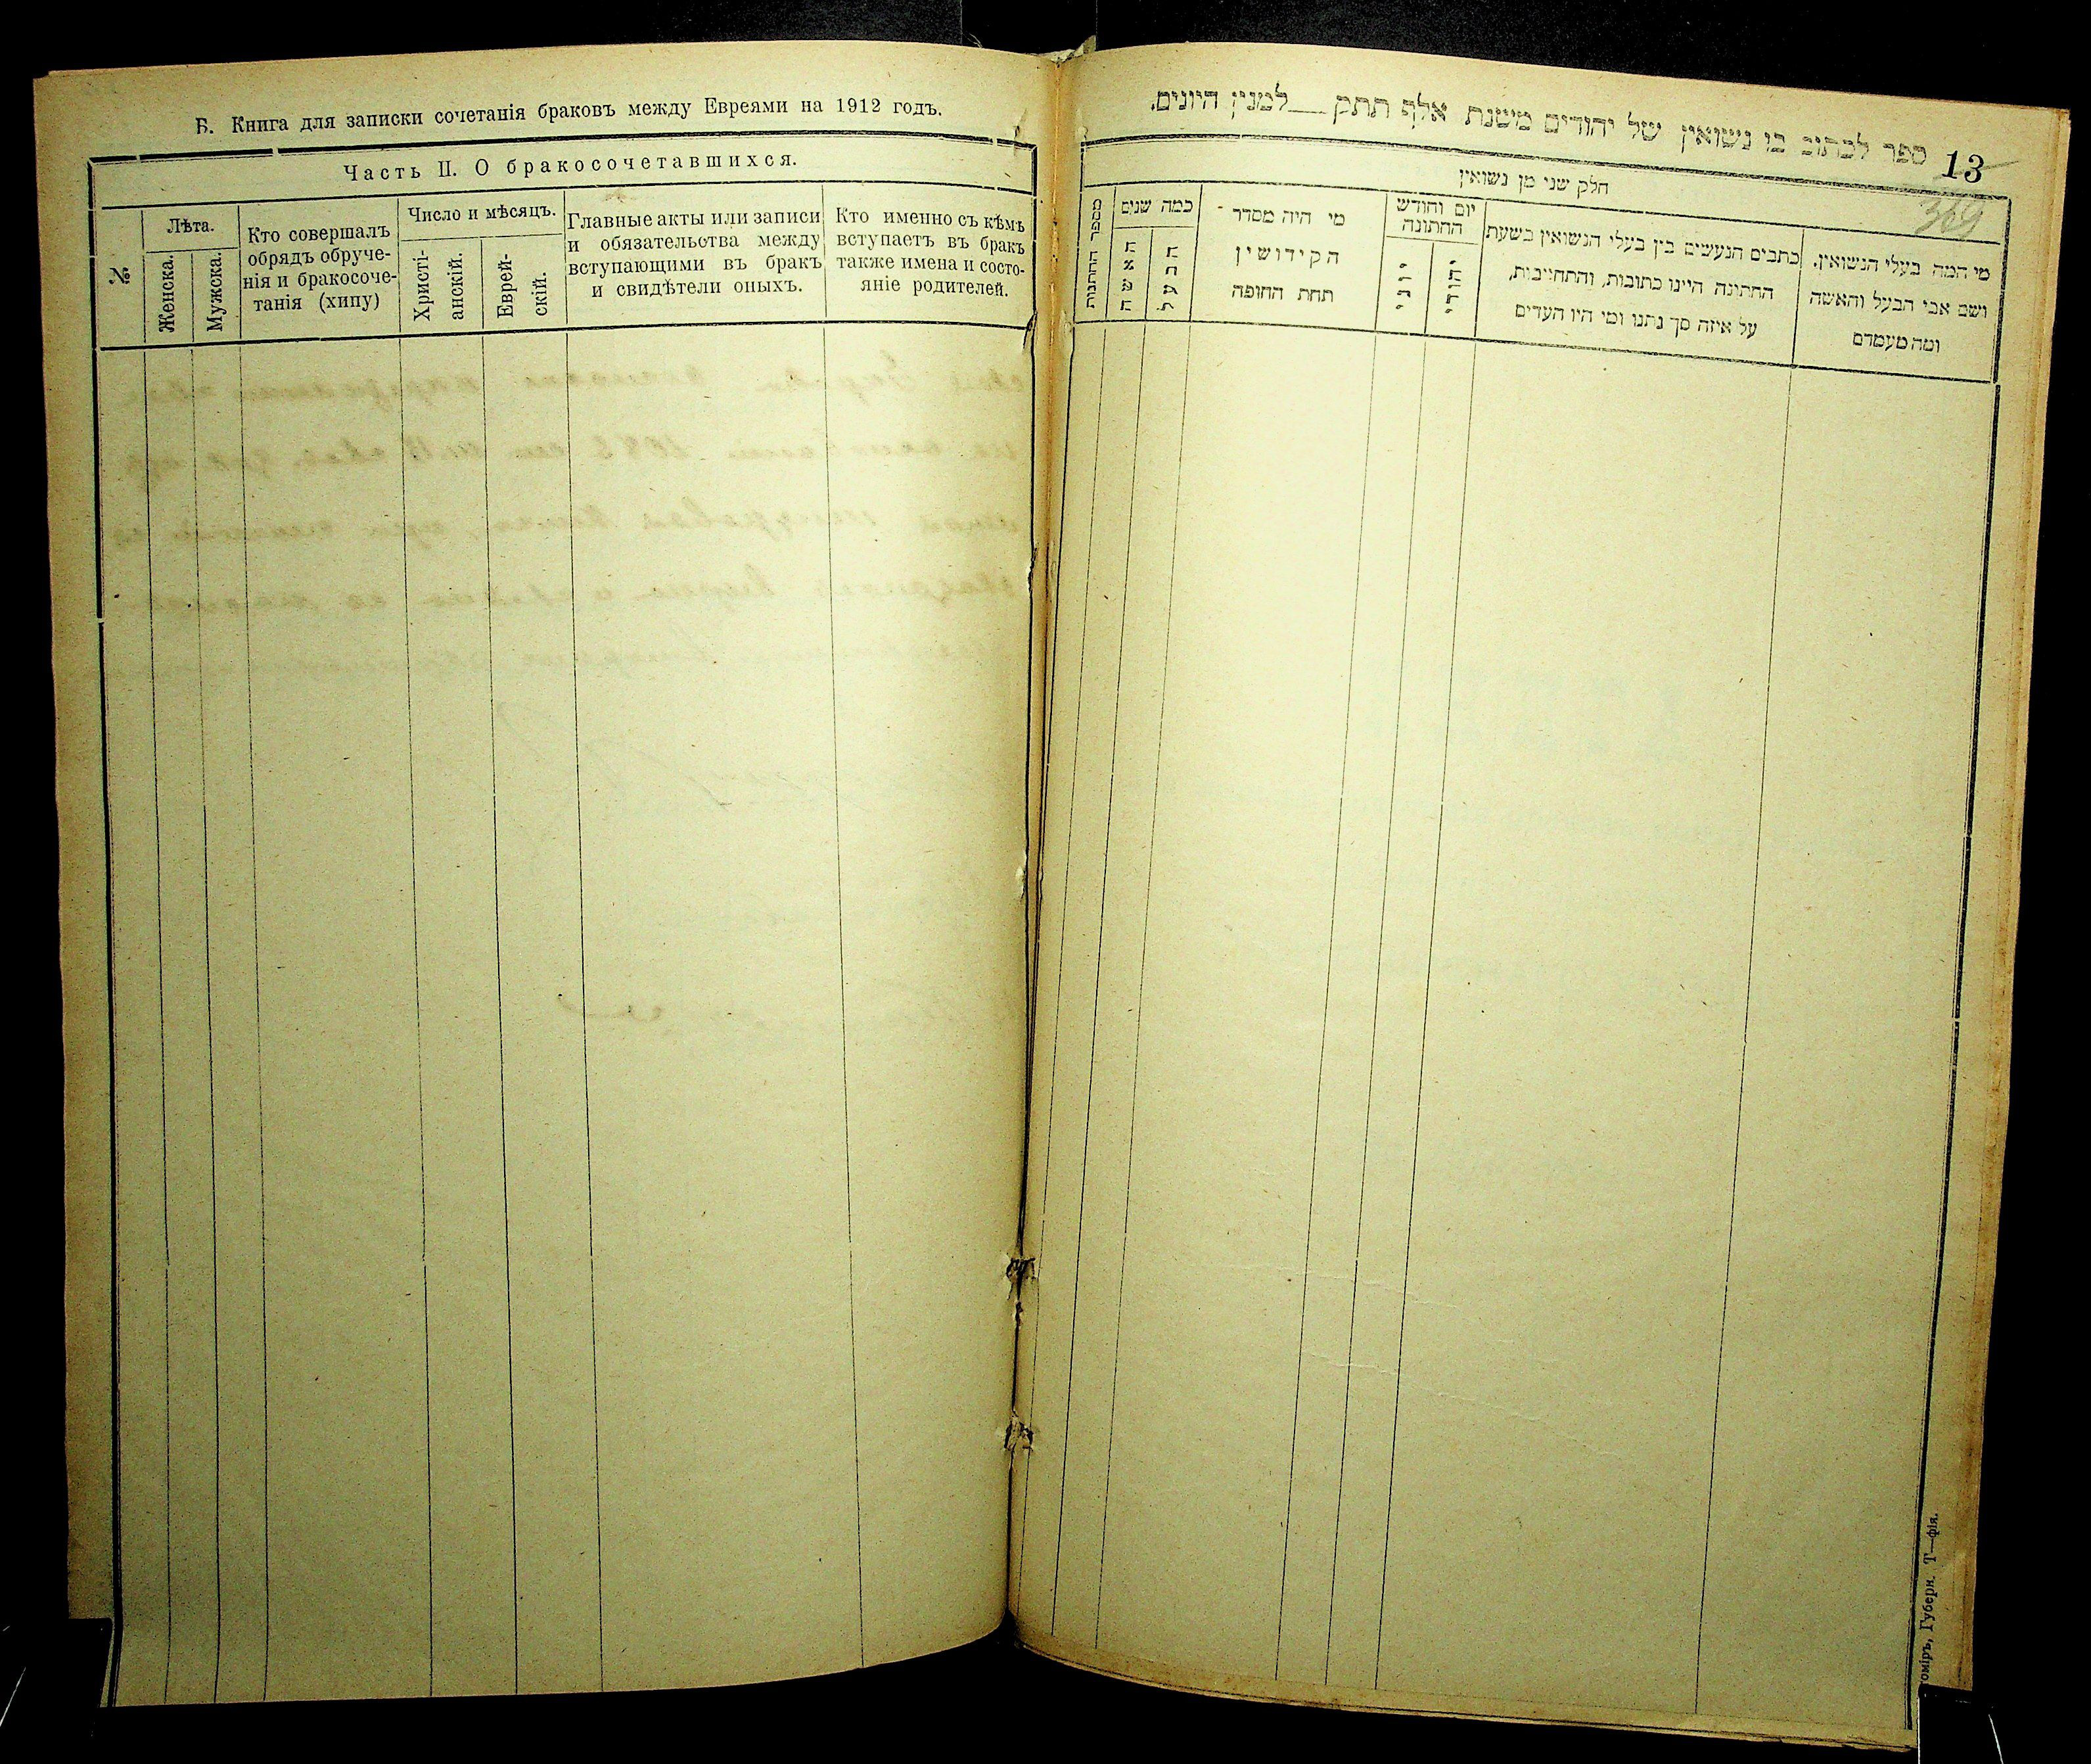 Б. Книга для записки сочетанія браковъ между Евреями на 1912 годъ.
Часть II. О бракосочетавшихся.
№
Лѣта.
Женска.
Мужска.
Кто совершалъ
обрядъ обруче-
нія и бракосоче-
танія (хипу)
Число и мѣсяцъ.
Христі-
анскій.
Еврей-
скій.
Главные акты или записи
и обязательства между
вступающими въ бракъ
и свидѣтели оныхъ.
Кто именно съ кѣмъ
вступаетъ въ бракъ
также имена и состо-
яніе родителей.
13
369
ספר לכתוב בו נשואין של יהודים משנת אלף תתק___למנין היונים.
חלק שני מן נשואין
מספר החתנות
כמה שנים
האשה
הבעל
מי היה מסדר
הקידושין
תחת החופה
יום וחודש
החתונה
יוני
יהודי
כתבים הנעשים בין בעלי הנשואין בשעת
החתונה היינו כתובות, והתחייבות,
על איזה סך נתנו ומי היו העדים
מי המה בעלי הנשואין.
ושם אבי הבעל והאשה
ומה מעמדם
омiръ, Губерн. Т—фія.